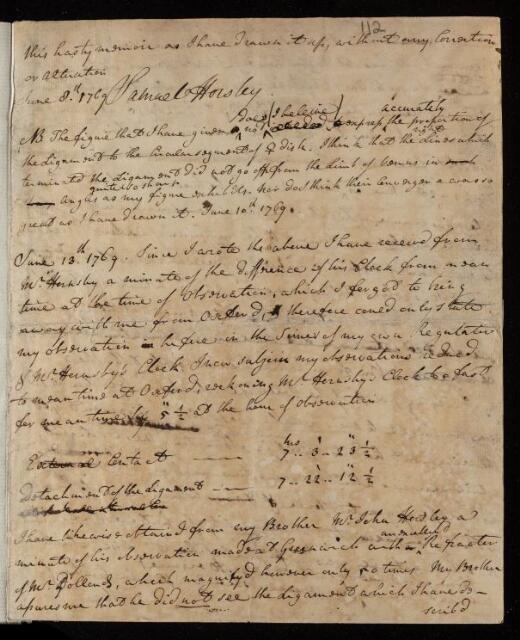 112
this hasty memoir as I have drawn it up, without any Correction
or alteration
June 8.th 1769 Samuel Horsley
NB The figure that I have given does (I believe) not express accurately the proportion of
the ligament to the Circular segment of ♀ disk. I think that the right lines which
terminated the ligament did not go off from the limb of Venus in
angles quite so sharp as my figure exhibits. Nor do I think their convergence was so
great as I have drawn it. June 10.th 1769.
June 13.th 1769. Since I wrote the above I have received from
Mr Hornsby a minute of the difference of his Clock from mean
time at the time of Observation, which I forgot to bring
away with me from Oxford, & therefore could only state
my observation before in the times of my own Regulator
& Mr Hornsby's Clock. I now subjoin my observations reduced
to mean time at Oxford, reckoning Mr Hornsby's Clock too fast
for mean time by 5″ ½ at the hour of observation
hrs ′ ″
External Contact — 7 .. 3 .. 23 ½
Detachment of the ligament — 7 .. 22 .. 12 ½
I have likewise obtained from my Brother Mr John Horsley a
minute of his observation made at Greenwich with an the refracter
of Mr Dollond's, which magnify'd however only times My Brother
assures me that he did not see the ligament which I have de-
scrib'd